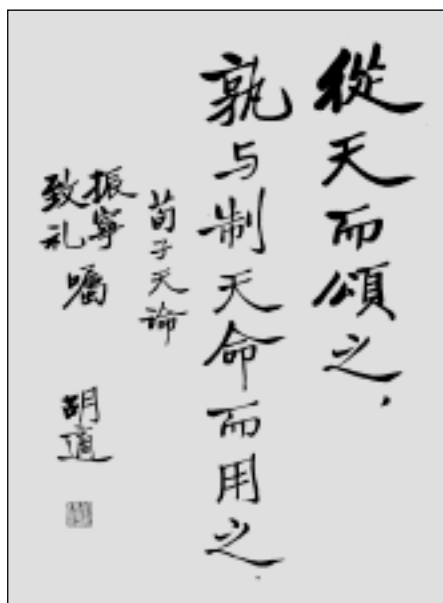 從天而頌之，
孰与制天命而用之.
荀子天論
振寧
致礼
囑
胡適